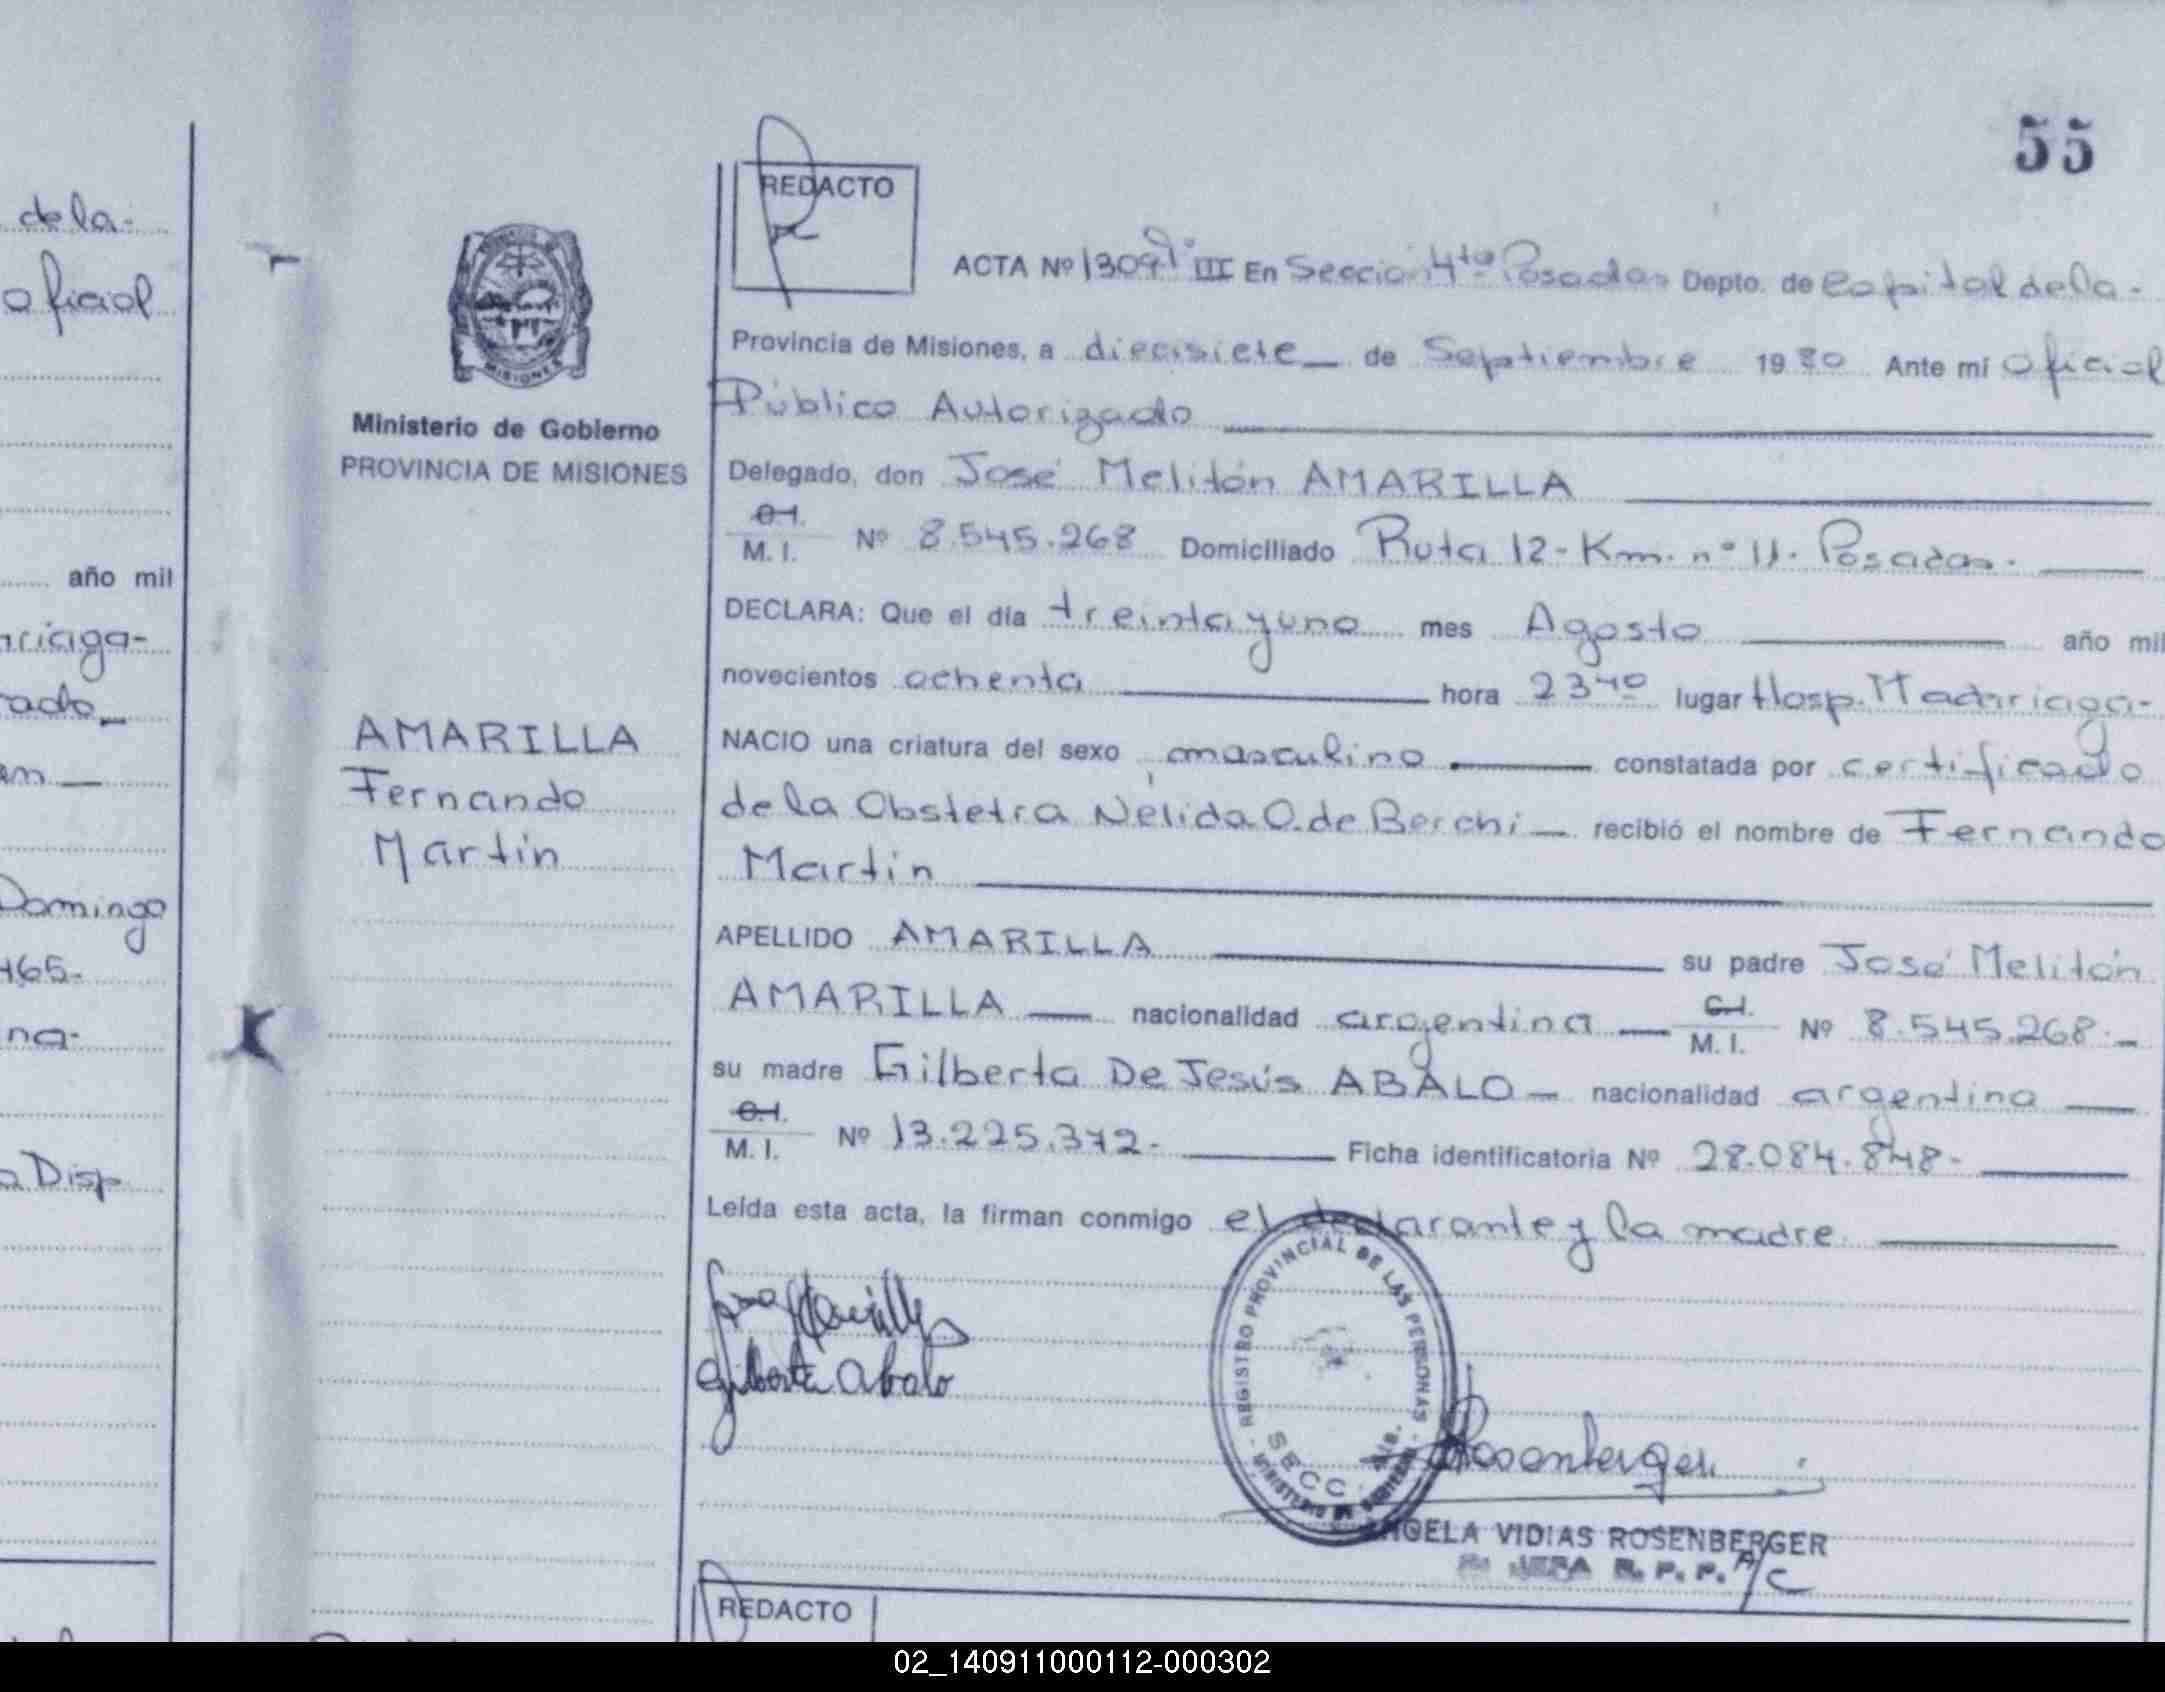 55
de la-
oficial
año mil
rado
Domingo
465-
na-
Disp
MISIONES
Ministerio de Gobierno
PROVINCIA DE MISIONES
AMARILLA
Fernando
Martín
REDACTO
ACTA Nº 1309 Tº III En Sección 4ta Posadas Depto. de Capital de la-
Provincia de Misiones, a diecisiete de Septiembre 1980 Ante mi Oficial
Público Autorizado
Delegado, don José Melitón AMARILLA
C.I.
M. I. Nº 8.545.268 Domiciliado Ruta 12-Km. nº 11. Posadas.
DECLARA: Que el día treinta y uno mes Agosto año mil
novecientos ochenta hora 23⁴⁰ lugar Hosp. Madariaga-
NACIO una criatura del sexo masculino constatada por certificado
de la Obstetra Nélida O. de Berchi recibió el nombre de Fernando
Martín
APELLIDO AMARILLA su padre José Melitón
AMARILLA nacionalidad argentina C.I. M. I. Nº 8.545.268-
su madre Gilberta De Jesús ABALO nacionalidad argentina
C.I.
M. I. Nº 13.225.372- Ficha identificatoria Nº 28.084.848-
Leída esta acta, la firman conmigo el declarante y la madre.
Gilberta Abalo
REGISTRO PROVINCIAL DE LAS PERSONAS
SECC.
Rosenberger
ANGELA VIDIAS ROSENBERGER
JEFA R. P. P. A/C
REDACTO
02_140911000112-000302